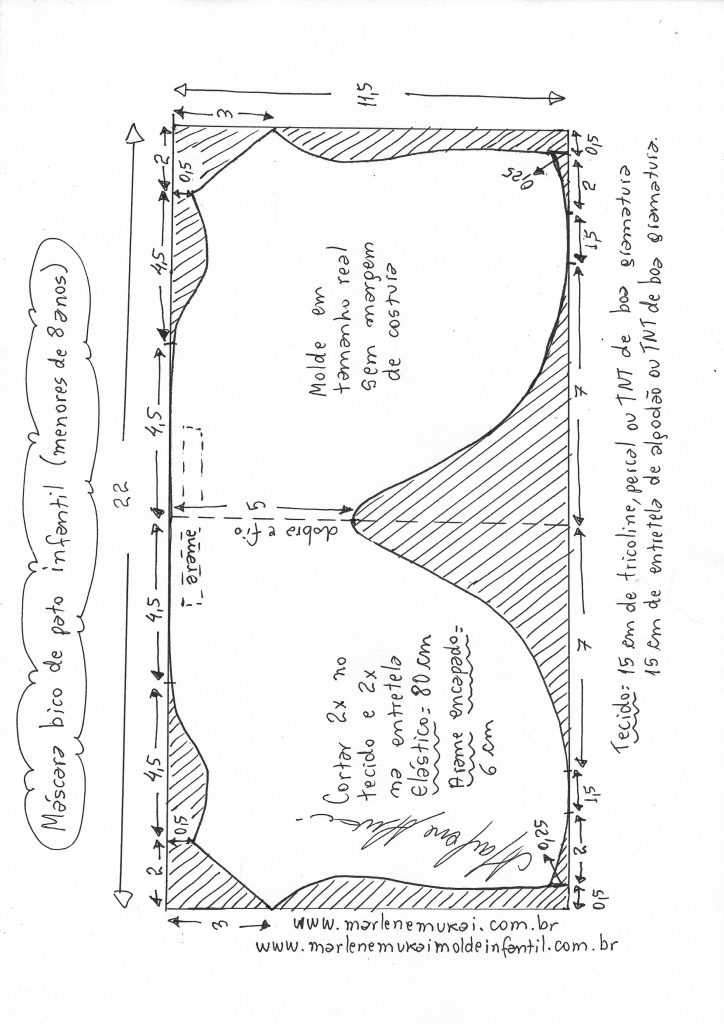 Máscara bico de pato infantil (menores de 8 anos)
22
2 4,5 4,5 4,5 4,5 2
3 0,5 0,5 3
arame
5
11,5
dobra e fio
Cortar 2x no
tecido e 2x
na entretela
Elástico= 80 cm
Arame encapado=
6 cm
Molde em
tamanho real
sem margem
de costura
0,25 0,25
0,5 2 1,5 7 7 1,5 2 0,5
Tecido= 15 cm de tricoline, percal ou TNT de boa gramatura
15 cm de entretela de algodão ou TNT de boa gramatura.
www.marlenemukai.com.br
www.marlenemukaimoldeinfantil.com.br